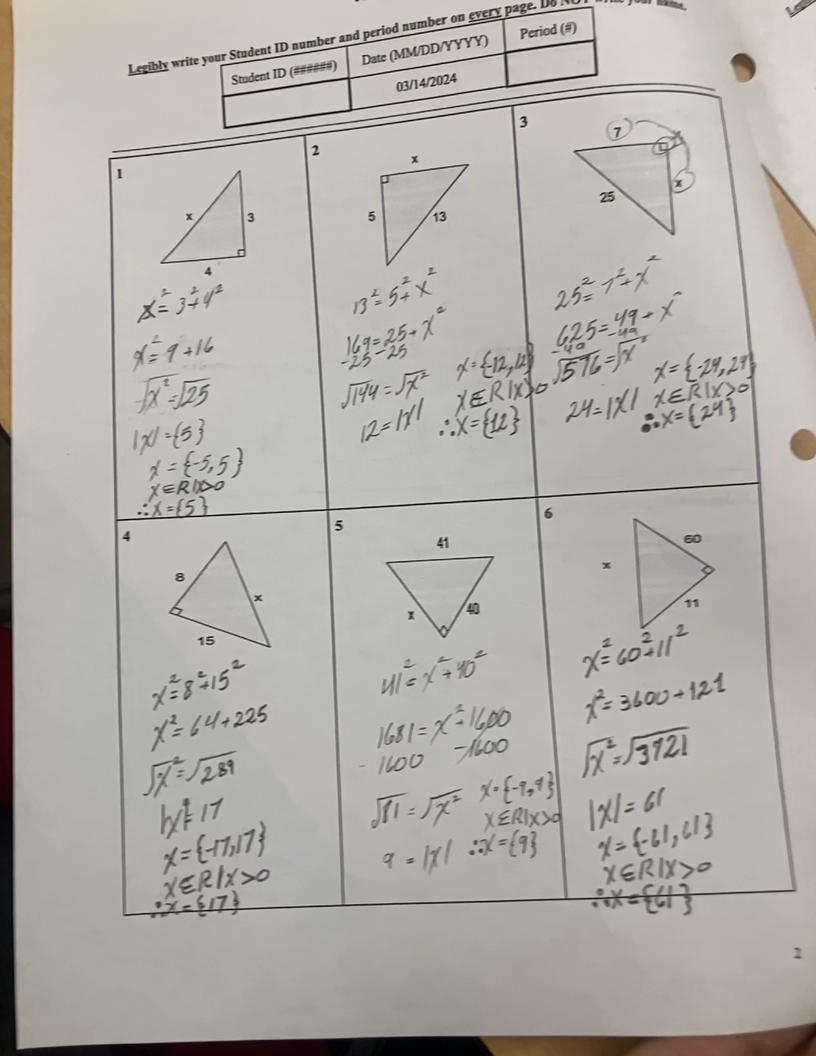 Legibly write your Student ID number and period number on every page. Do NOT write your name.
Student ID (######)
Date (MM/DD/YYYY)
Period (#)
03/14/2024
1
x
3
4
x²=3²+4²
x²=9+16
√x²=√25
|x|={5}
x={-5,5}
x∈R|x>0
∴x={5}
2
x
5
13
13²=5²+x²
169=25+x²
-25 -25
√144=√x²
12=|x|
x={12,12}
x∈R|x>0
∴x={12}
3
7
x
25
25²=7²+x²
625=49+x²
-49 -49
√576=√x²
24=|x|
x={-24,24}
x∈R|x>0
∴x={24}
4
8
x
15
x²=8²+15²
x²=64+225
√x²=√289
|x|=17
x={-17,17}
x∈R|x>0
∴x={17}
5
41
x
40
41²=x²+40²
1681=x²+1600
-1600 -1600
√81=√x²
9=|x|
x={-9,9}
x∈R|x>0
∴x={9}
6
60
x
11
x²=60²+11²
x²=3600+121
√x²=√3721
|x|=61
x={-61,61}
x∈R|x>0
∴x={61}
2